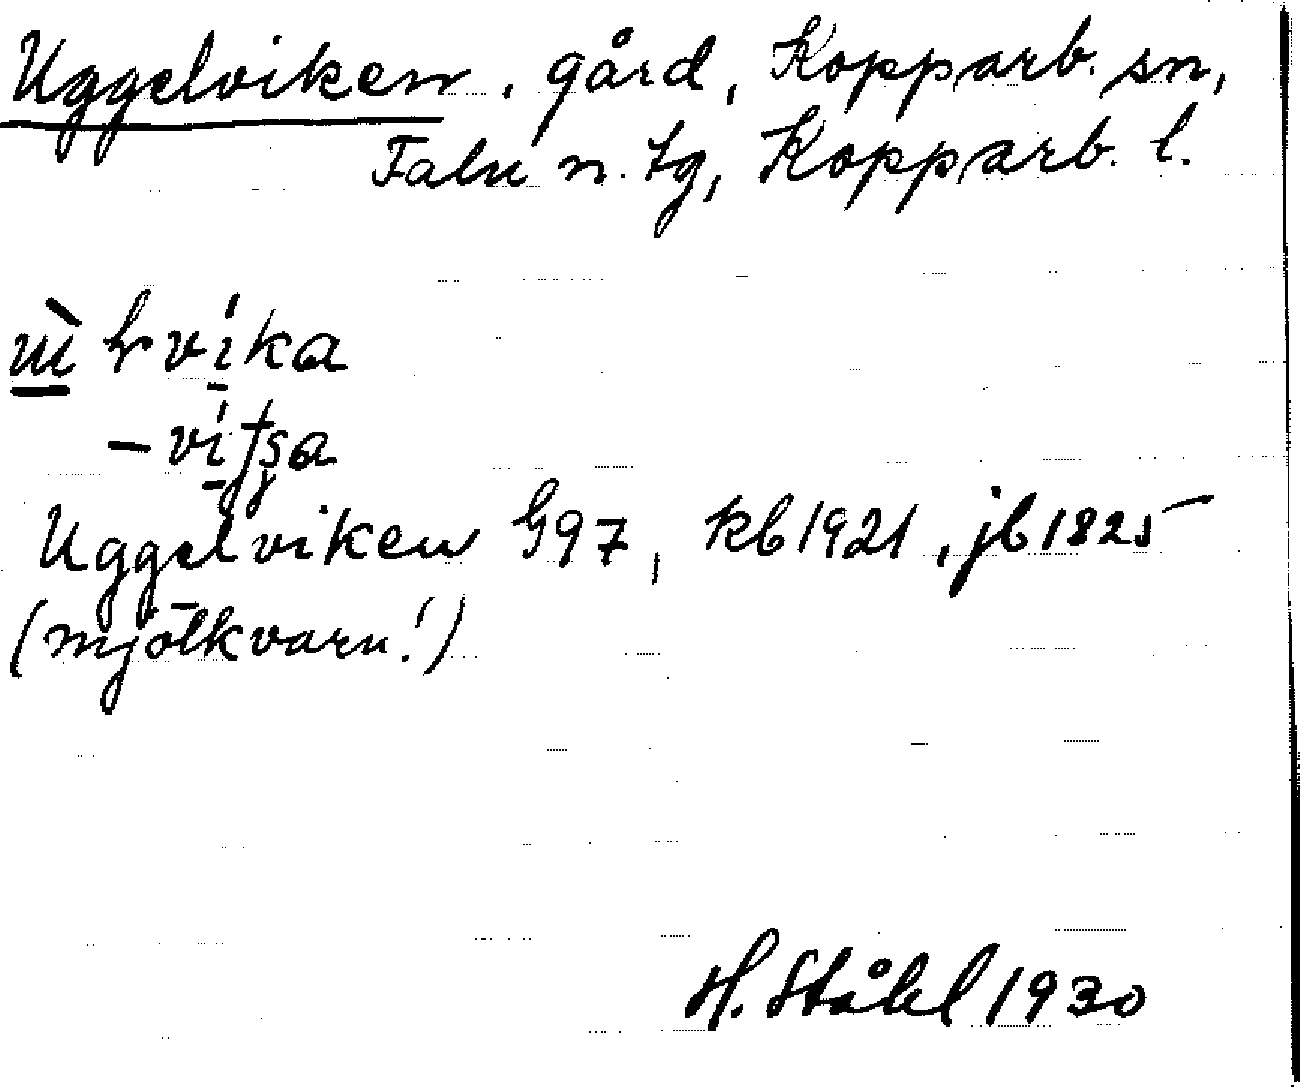 Uggelviken, gård, Kopparb. sn,
Falu n. tg, Kopparb. l.
-vi̱tʂa
Uggelviken G97, kb 1921, jb 1825
(mjölkvarn!)
H. Ståhl 1930